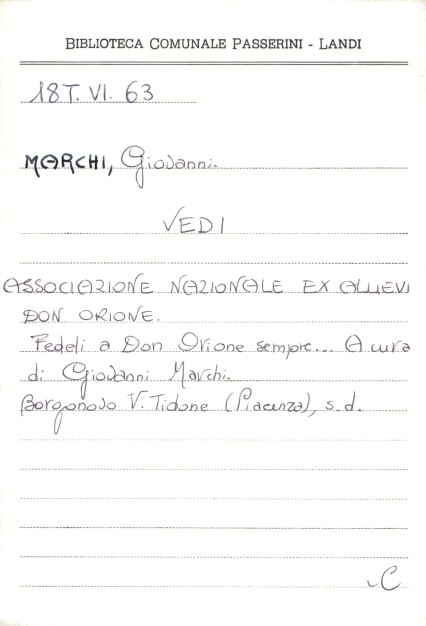 BIBLIOTECA COMUNALE PASSERINI - LANDI
18T. VI. 63
MARCHI, Giovanni.
VEDI
ASSOCIAZIONE NAZIONALE EX ALLIEVI
DON ORIONE.
Fedeli a Don Orione sempre... A cura
di Giovanni Marchi.
Borgonovo V. Tidone (Piacenza), s.d.
C